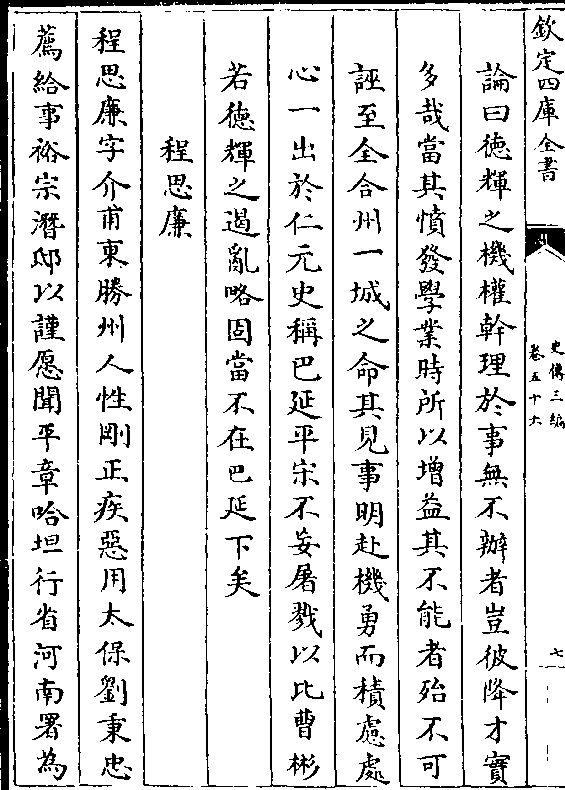 欽定四庫全書
史傳三編
卷五十六
七
論曰德輝之機權幹理於事無不辦者豈彼降才實
多哉當其憤發學業時所以增益其不能者殆不可
誣至全合州一城之命其見事明赴機勇而積慮處
心一出於仁元史稱巴延平宋不妄屠戮以比曹彬
若德輝之遏亂略固當不在巴延下矣
程思廉
程思廉字介甫東勝州人性剛正疾惡用太保劉秉忠
薦給事裕宗潛邸以謹愿聞平章哈坦行省河南署為